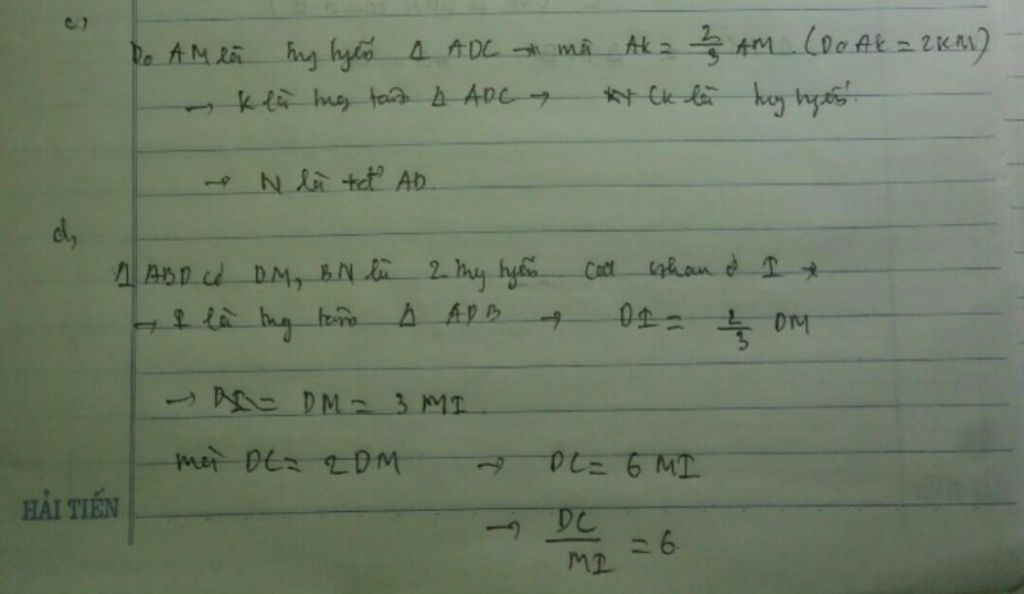 c,
Do AM là trung tuyến Δ ADC → mà AK = 2/3 AM. (Do AK = 2KM)
→ K là trọng tâm Δ ADC → CK là trung tuyến.
→ N là tđ AD.
d,
Δ ABD có DM, BN là 2 trung tuyến cắt nhau ở I →
→ I là trọng tâm Δ ADB → DI = 2/3 DM
→ DM = 3 MI.
mà DC = 2DM → DC = 6 MI
HẢI TIẾN
→ DC/MI = 6